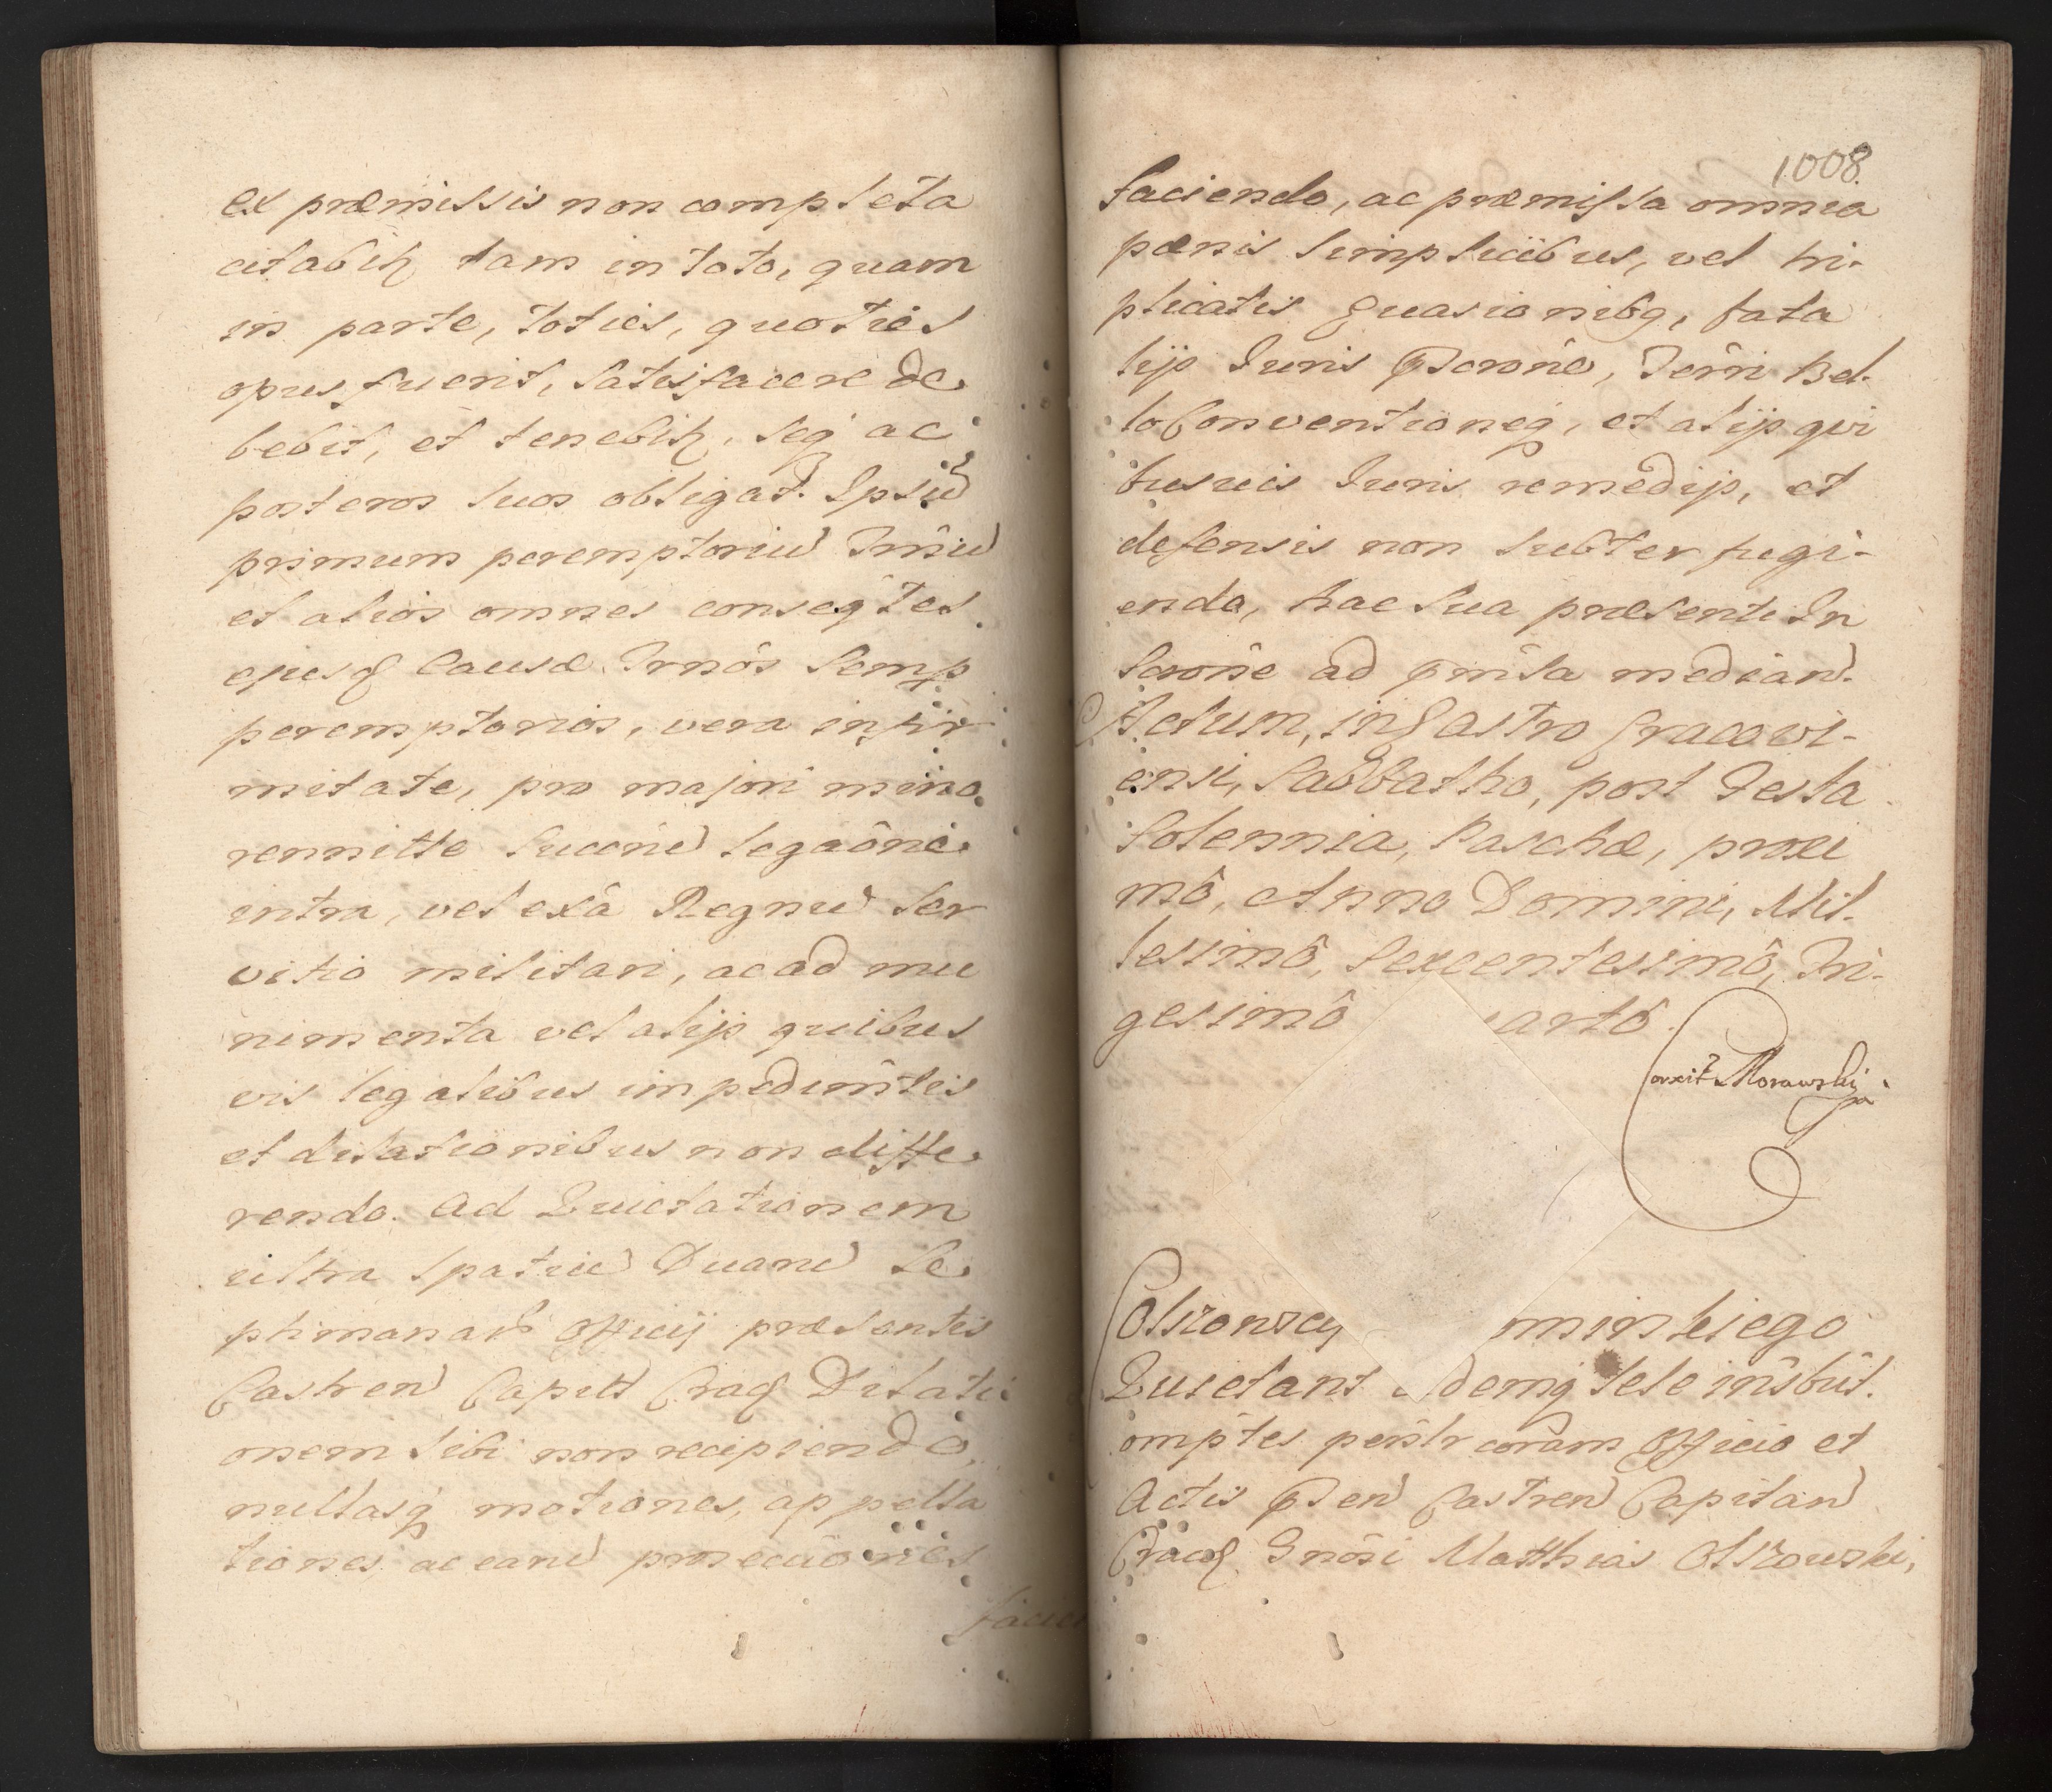 ex præmissis non completa
citabitr tam in toto, quam
in parte, toties, quoties
opus fuerit, satisfacere de
bebit, et tenebitr, seq ac
posteros suos obligat. Ipsũ
primum peremptoriũ Trñiũ
et alios omnes conseq̃tes
ejusq Causæ Trnôs semp
peremptorios, vera infir
mitate, pro majori mino
rennitte luccñe legaône
intra, vel exâ Regnũ ser
vitio militari, ac ad mu
nimenta vel alijs quibus
vis legalibus impedim̃tis
et dilationibus non diffe
rendo. Ad Quietationem
ultra spatiũ Duarũ Se
ptimanarũ Officij præsentis
Castren Capitt Cracq Dilati
onem sibi non recipiendo,
nullasq motiones, appella
tiones, ac earũ prosecuõnes
facien
1008.
faciendo, ac præmissa omnia
pænis simplicibus, vel tri-
plicatis Evasionibq, fata
lijs Iuris Pscrõne, Term̃i Bel-
lo Conventioneq, et alijs qui
busvis Iuris remedijs, et
defensis non subterfugi-
endo, hac sua præsenti In
scrõne ad p̃mssa median.
Actum, in Castro Cracovi-
ensi, Sabbatho, post Festa
solennia, Paschæ, proxi
mô, Anno Domini, Mil-
lesimô, Sexcentesimô, Tri-
gesimô artô.
Corexit Morawski
Olszowscy minskiego
Quietant demq tele insbut.
omptes persltr coram Officio et
Actis Psen Castren Capitan
Cracq Gnôsi Matthias Olszowski,